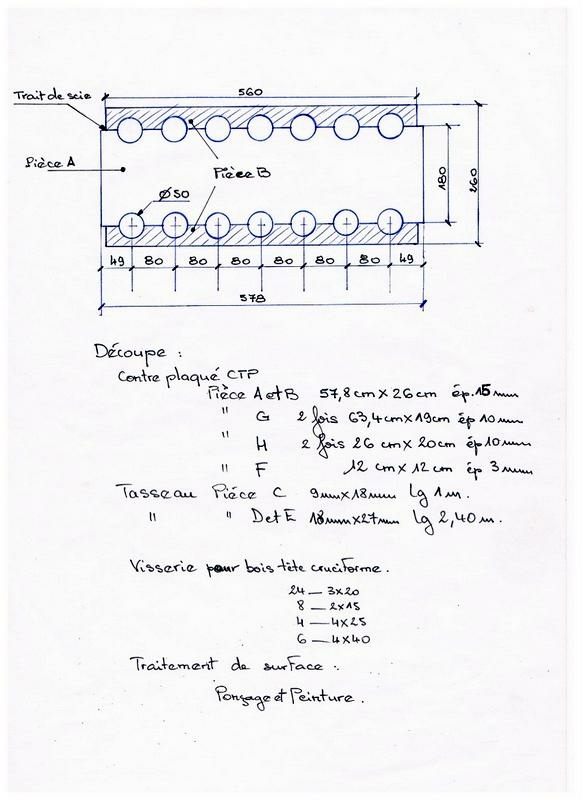 560
Trait de scie
Pièce A
Pièce B
Ø50
180
260
49 80 80 80 80 80 80 49
578
Découpe :
Contre plaqué CTP
Pièce A et B 57,8 cm X 26 cm ép. 15 mm
" G 2 fois 63,4cm x 19cm ép 10 mm
" H 2 fois 26 cm X 20cm ép 10 mm
" F 12 cm X 12 cm ép 3 mm
Tasseau Pièce C 9mm X 18mm lg 1 m.
" " D et E 18mm X 27mm lg 2,40 m.
Visserie pour bois tête cruciforme.
24 — 3x20
8 — 2x15
4 — 4x25
6 — 4x40
Traitement de surface :
Ponçage et Peinture.